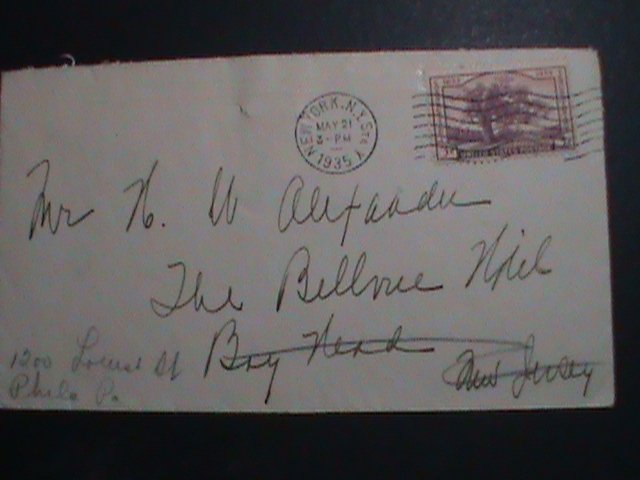 NEW YORK, N.Y. STA Y
MAY 21
3 - PM
1935
UNITED STATES POSTAGE
Mr H. W Alexander
The Bellvue Hotel
Bay Head
New Jersey
1200 Locust St
Phila Pa